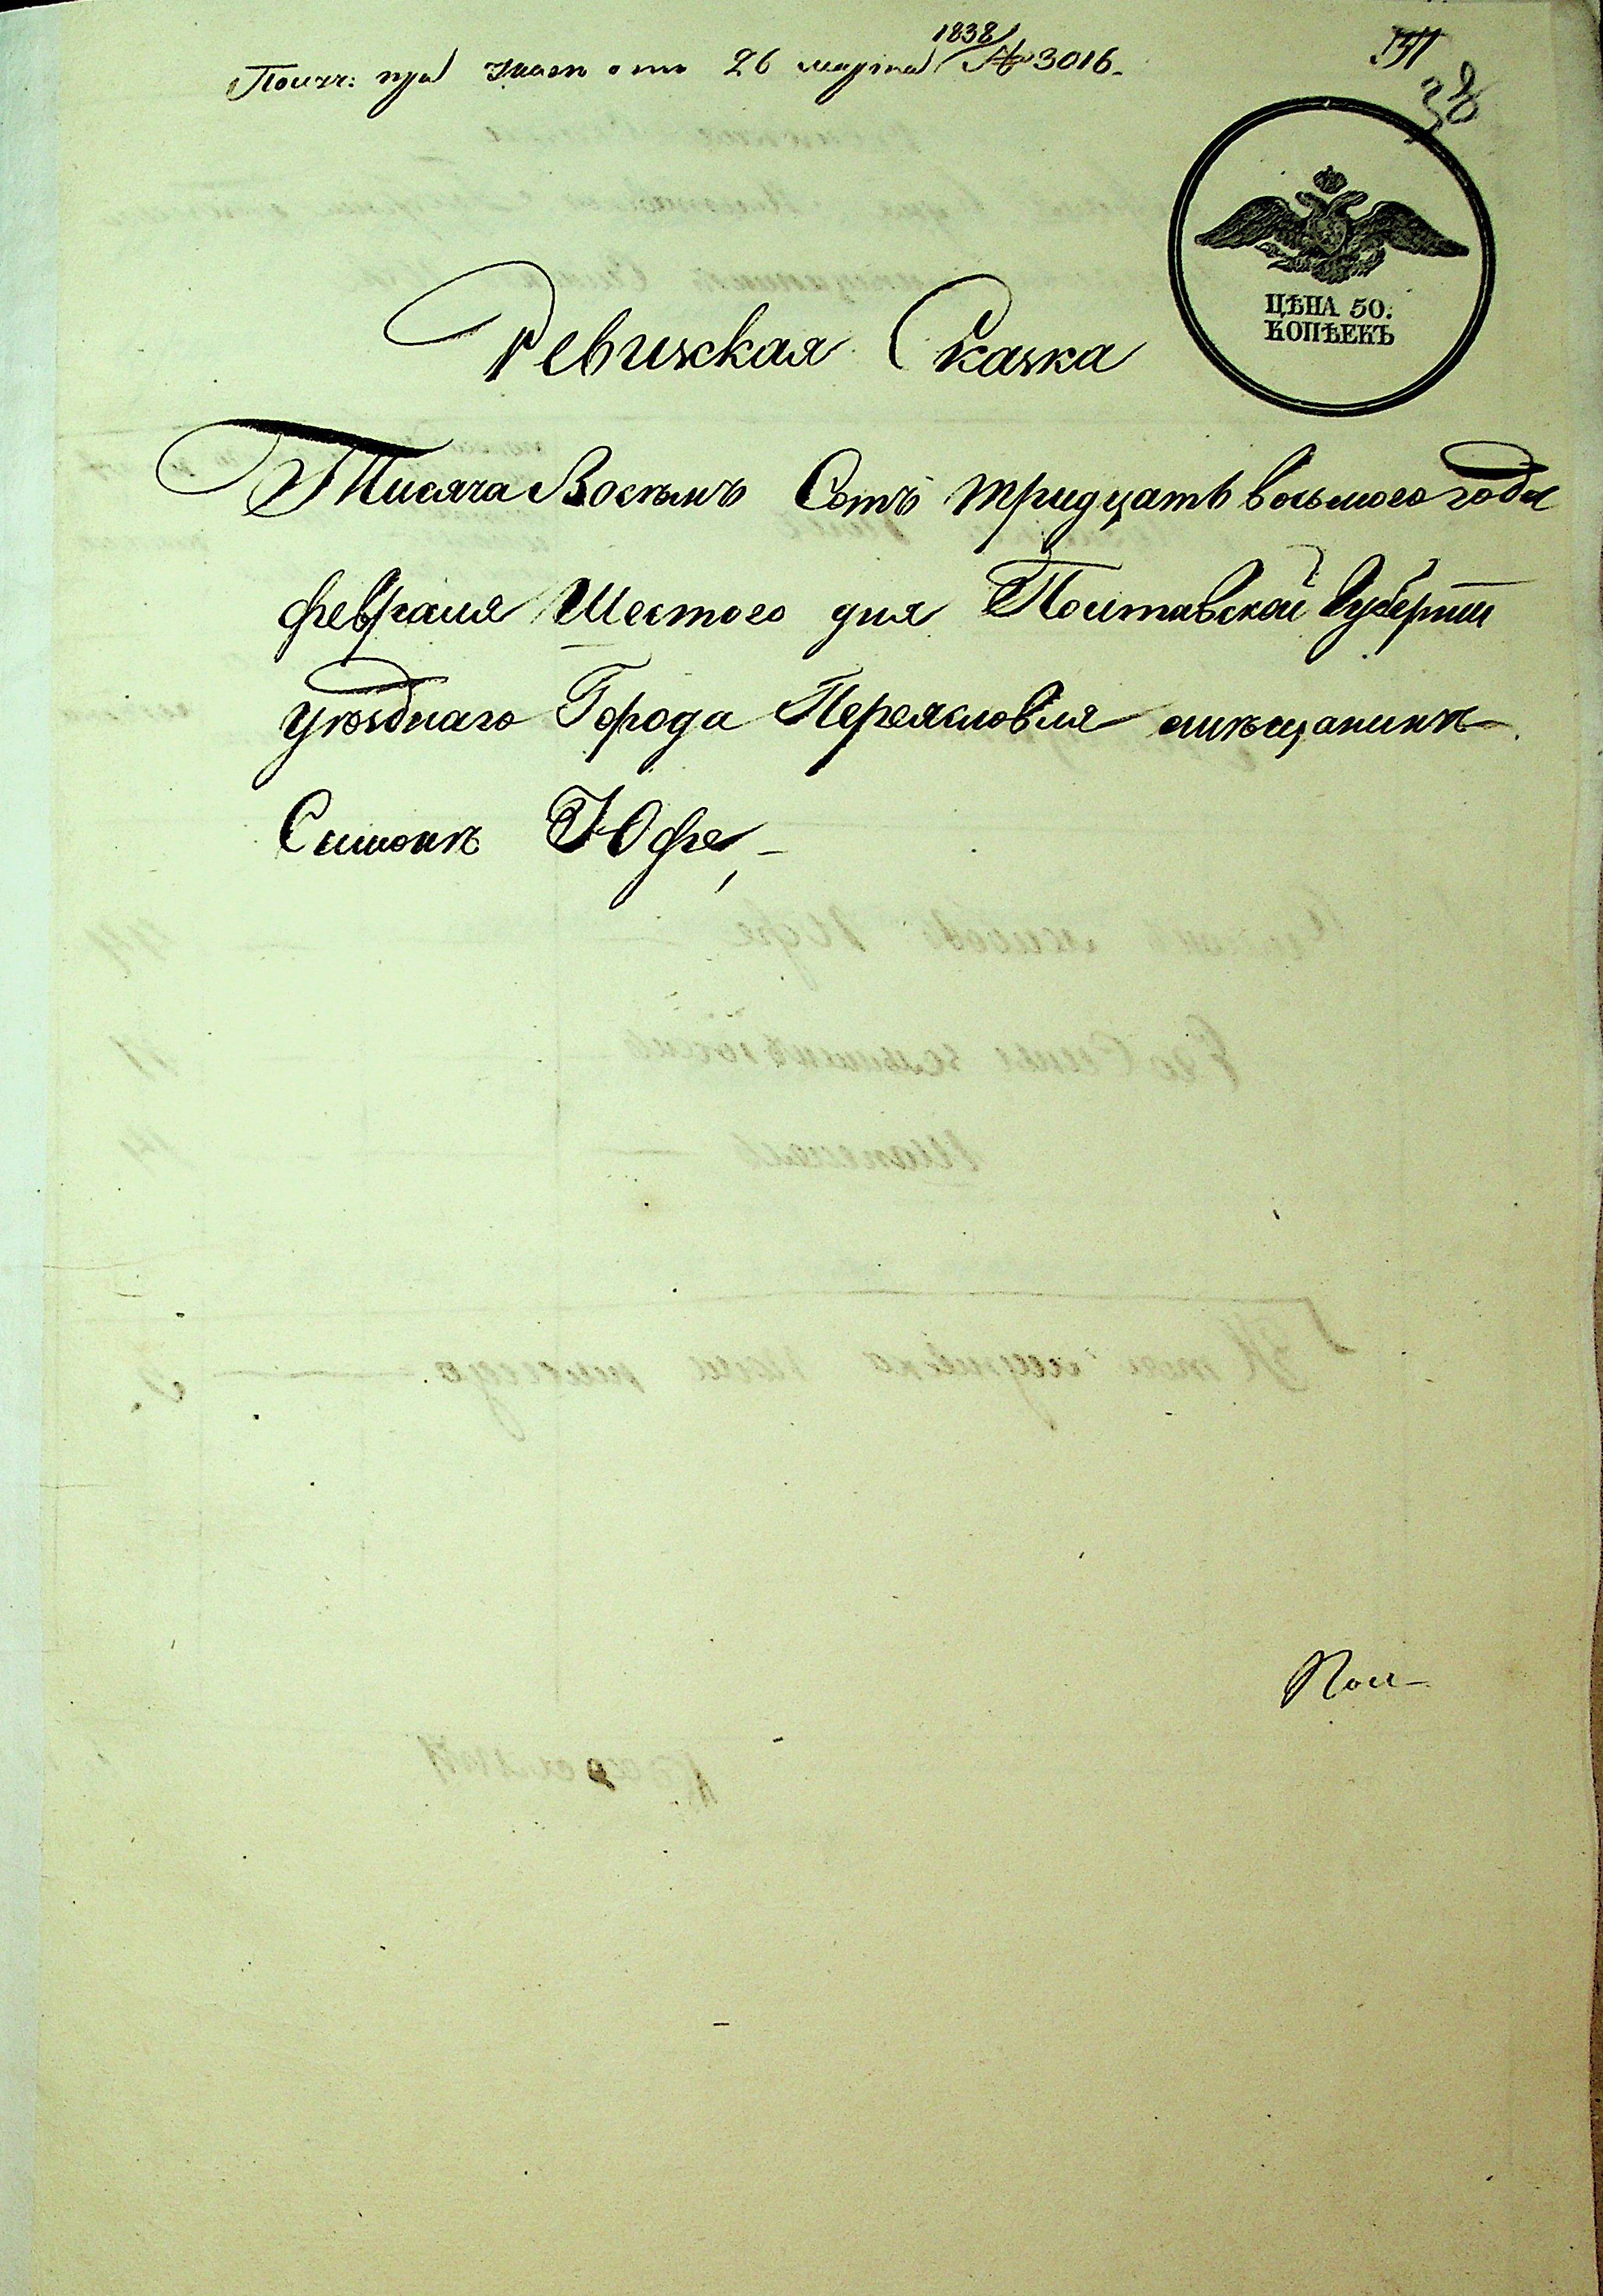 Получ: при указе отъ 26 марта 1838 № 3016.
38
ЦѢНА 50.
КОПѢЕКЪ
Ревижская Сказка
Тисяча Восемъ Сотъ тридцать восьмого года
февраля Шестого дня Полтавской Губерніи
уѣзднаго Города Переяславля мѣщанинъ
Симонъ Юфе,